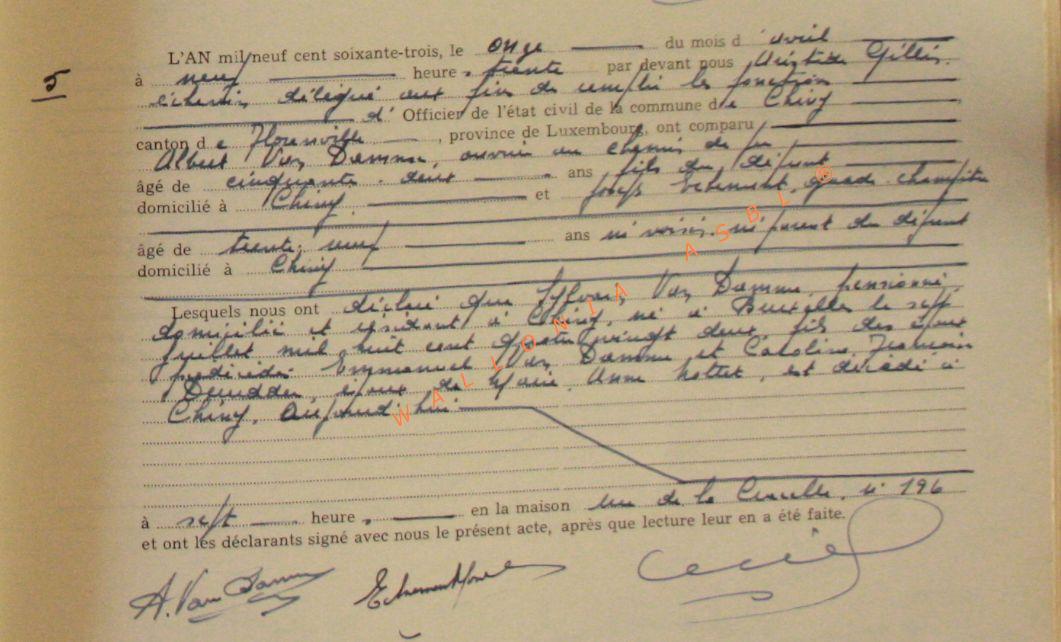 5
L'AN mil neuf cent soixante-trois, le onze du mois d'avril
à neuf heures trente par devant nous Aristide Gillis
échevin délégué aux fins de remplir les fonctions
d' Officier de l'état civil de la commune de Chiny
canton de Florenville, province de Luxembourg, ont comparu
Albert Van Damme, ouvrier au chemin de fer
âgé de cinquante-deux ans fils du défunt
domicilié à Chiny et Joseph garde champêtre
âgé de trente-neuf ans ni voisin ni parent du défunt
domicilié à Chiny
Lesquels nous ont déclaré que Sylvain Van Damme, pensionné,
domicilié et résidant à Chiny, né à Bruxelles le sept
juillet mil huit cent quatre vingt deux, fils des époux
prédécédés Emmanuel Van Damme et Caroline
époux de Marie, Anne est décédé à
Chiny, aujourd'hui
à sept heures, en la maison rue de la n° 196
et ont les déclarants signé avec nous le présent acte, après que lecture leur en a été faite.
A. Van Damme
WALLONIA ASBL ©